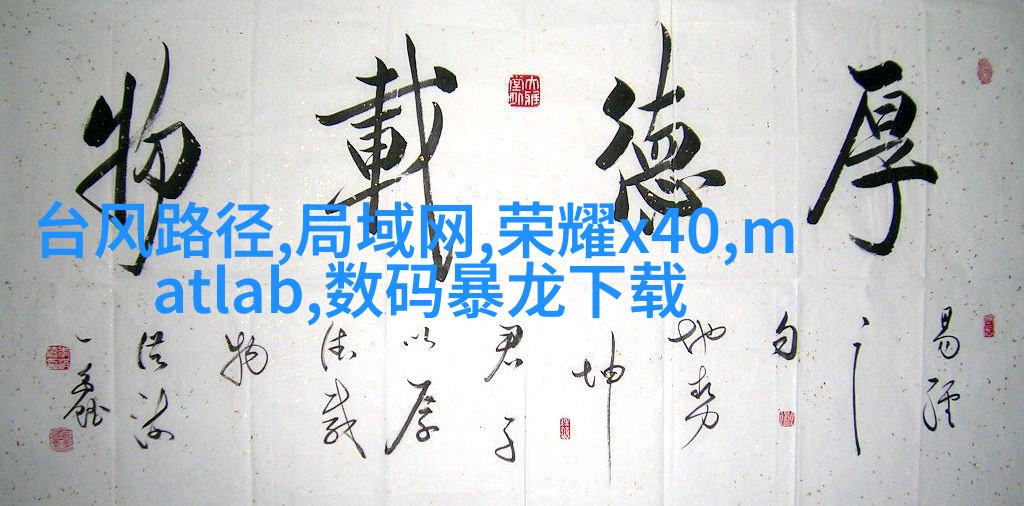 厚德載物
台风路径,局域网,荣耀x40,m
atlab,数码暴龙下载
易經
之
句
地势
坤
君子
以厚
德載
物